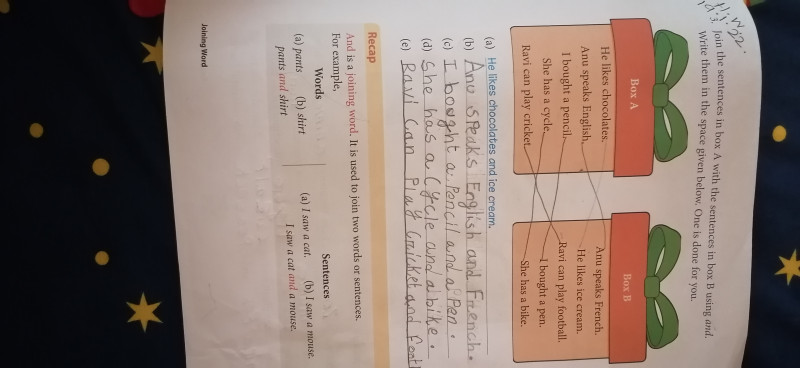 H.W
Join the sentences in box A with the sentences in box B using and.
Write them in the space given below. One is done for you.
Box A
He likes chocolates.
Anu speaks English.
I bought a pencil.
She has a cycle.
Ravi can play cricket.
Box B
Anu speaks French.
He likes ice cream.
Ravi can play football.
I bought a pen.
She has a bike.
(a) He likes chocolates and ice cream.
(b) Anu speaks English and French.
(c) I bought a Pencil and a Pen.
(d) She has a Cycle and a bike.
(e) Ravi Can Play Cricket and
Recap
And is a joining word. It is used to join two words or sentences.
For example,
Words
(a) pants (b) shirt
pants and shirt
Sentences
(a) I saw a cat. (b) I saw a mouse.
I saw a cat and a mouse.
Joining Word